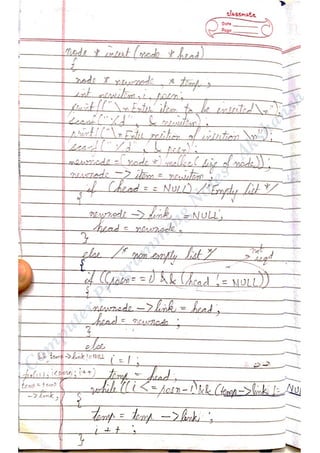 classmate
Date
Page
node * insert (node * head)
{
node * newnode, * temp;
int newitem, i, posn;
printf("\n Enter item to be inserted \n");
scanf("%d", & newitem);
printf("\n Enter position of insertion \n");
scanf("%d", & posn);
newnode = (node *) malloc (size of (node));
newnode -> item = newitem;
if (head == NULL) /* Empty list */
{
newnode -> link = NULL;
head = newnode;
}
else /* non empty list */
not reqd
{
if ((posn == 1) && (head != NULL))
{
newnode -> link = head;
head = newnode;
}
else
&& temp->link!=NULL i = 1;
i++) temp = head;
temp = temp while ((i <= posn-1) && (temp->link != NULL
-> link; {
temp = temp -> link;
i++;
}